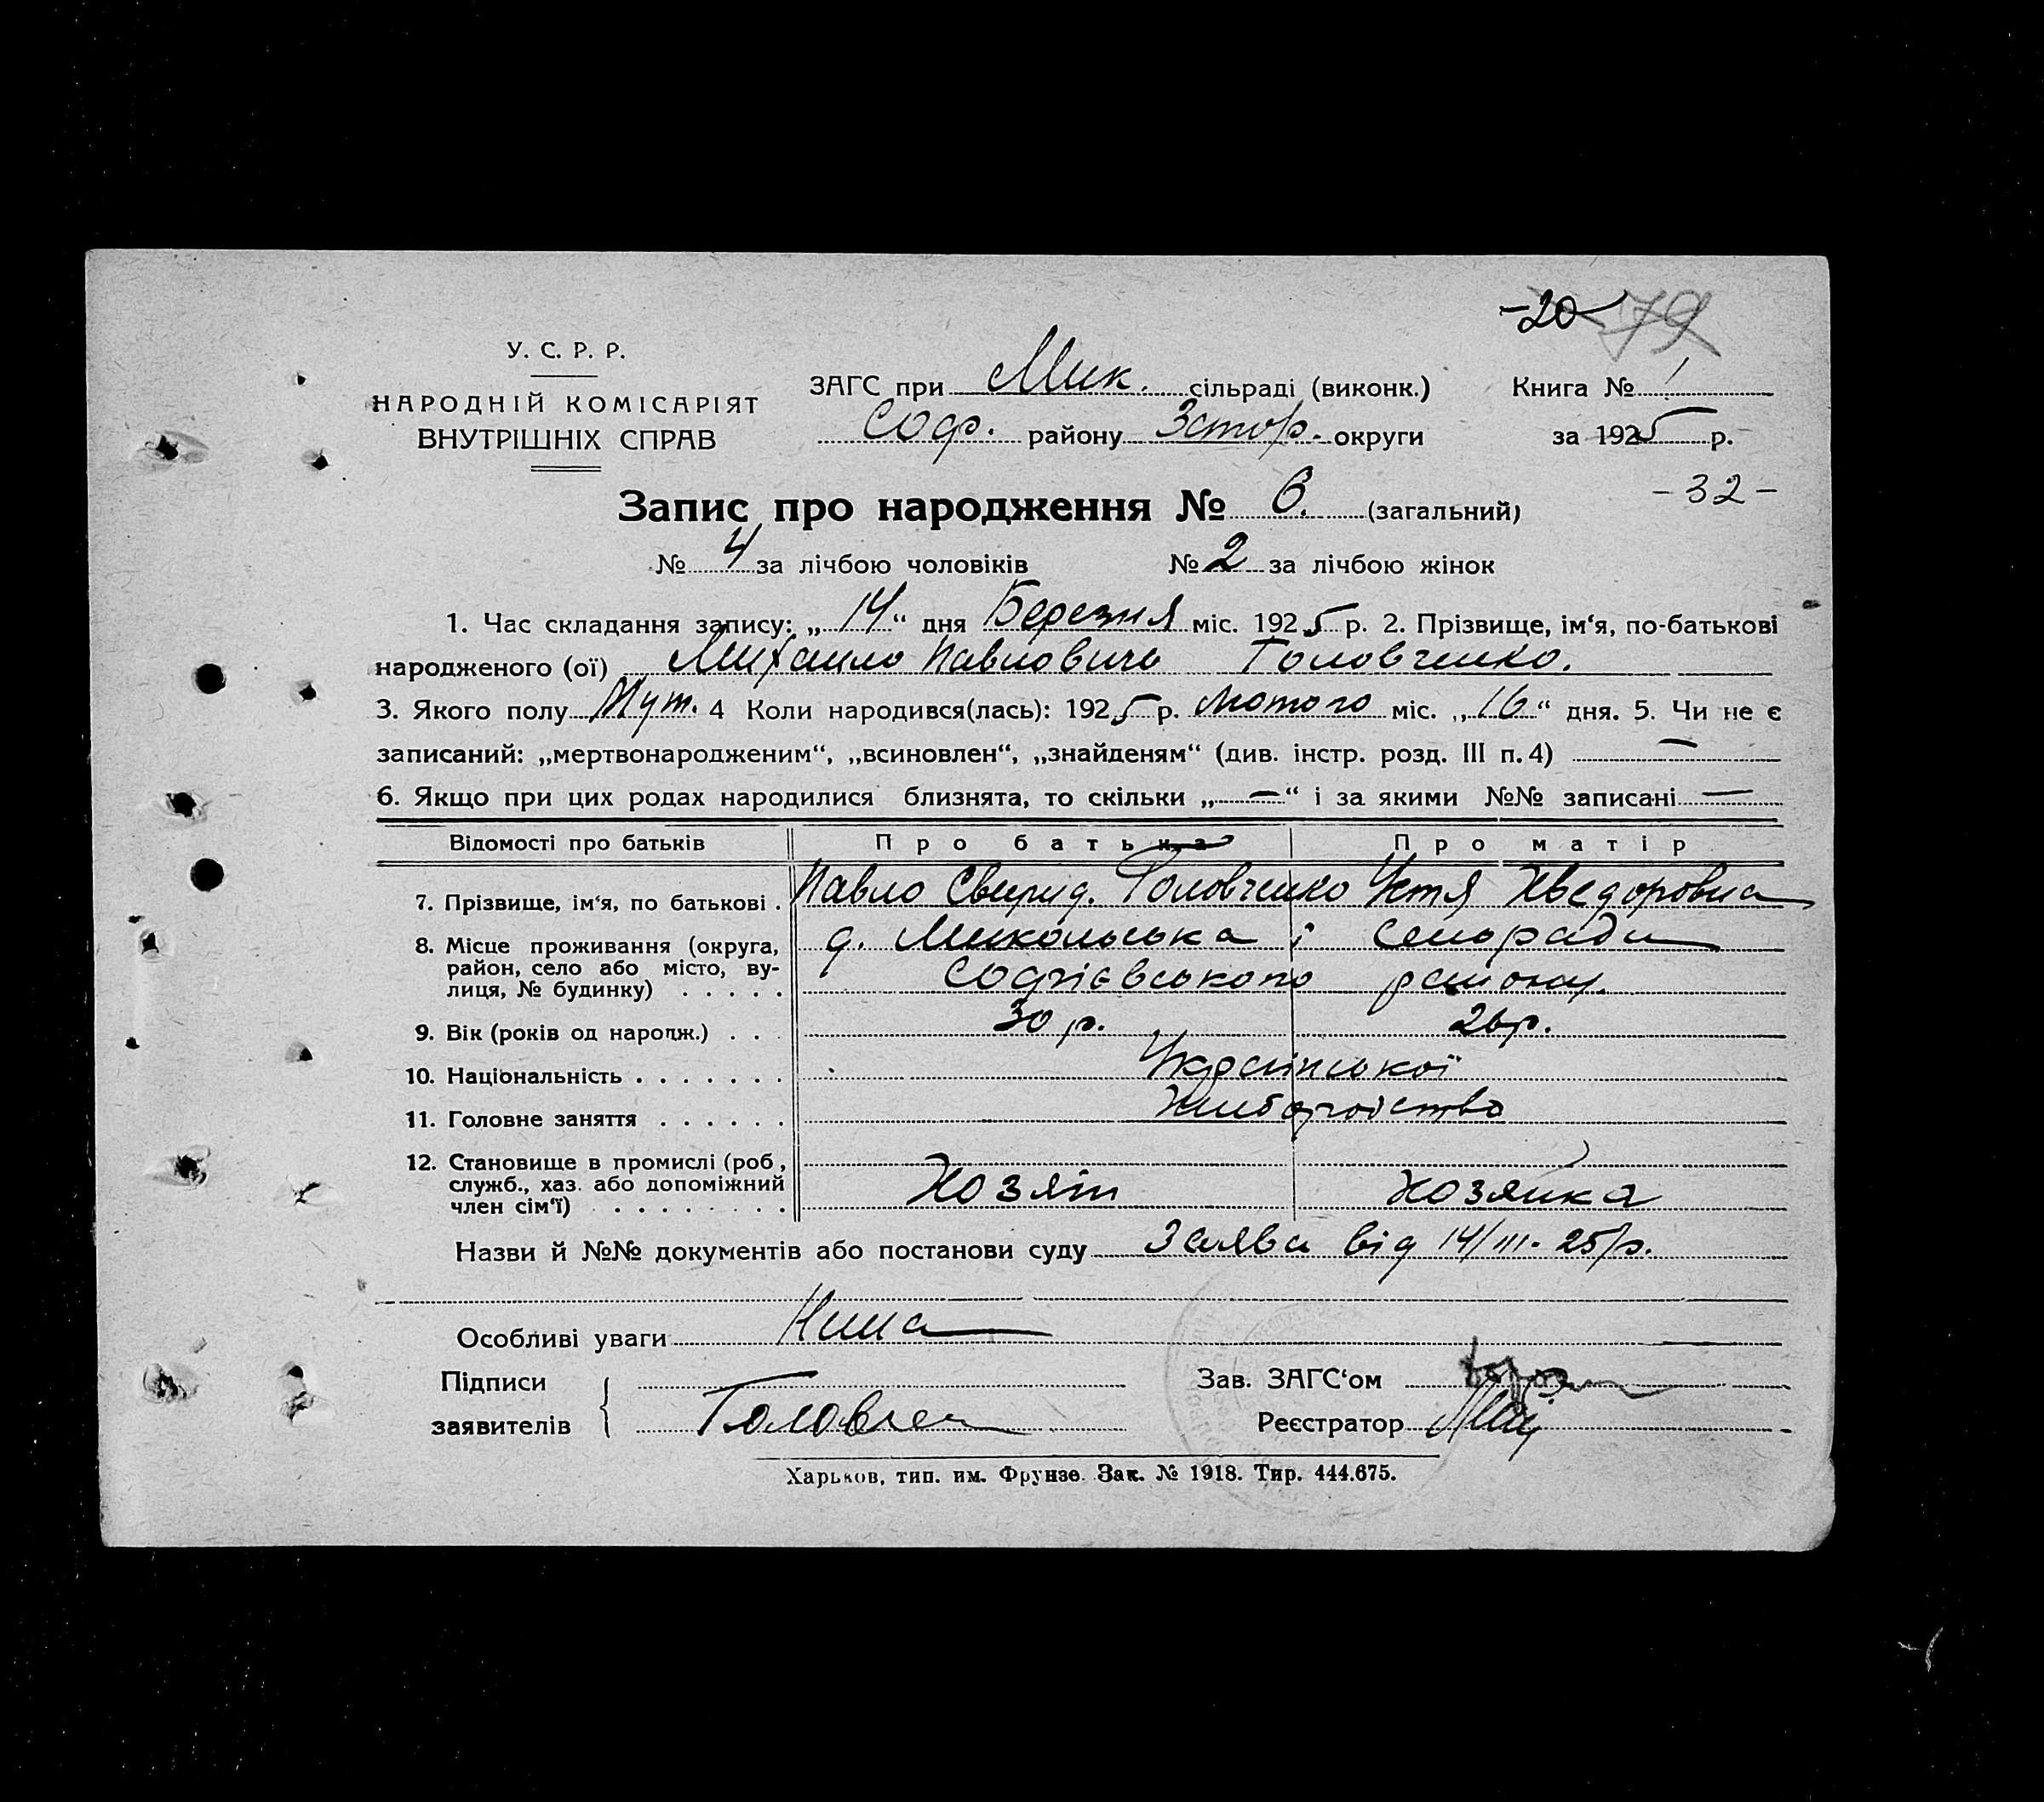 -20- 79
У. С. Р. Р.
НАРОДНІЙ КОМІСАРІЯТ
ВНУТРІШНІХ СПРАВ
ЗАГС при Мик. сільраді (виконк.) Книга № 1
Соф. району Запор. округи за 1925 р.
-32-
Запис про народження № 6. (загальний)
№ 4 за лічбою чоловіків № 2 за лічбою жінок
1. Час складання запису: „14“ дня Березня міс. 1925 р. 2. Прізвище, ім‘я, по-батькові
народженого (ої) Михаило Павловичь Головченко.
3. Якого полу Муж. 4 Коли народився(лась): 1925 р. Лютого міс. „16“ дня. 5. Чи не є
записаний: „мертвонародженим“, „всиновлен“, „знайденям“ (див. інстр. розд. III п. 4) —
6. Якщо при цих родах народилися близнята, то скільки „—“ і за якими №№ записані —
Відомості про батьків Про батька Про матір
7. Прізвище, ім‘я, по батькові . Павло Свирид. Головченко Устя Хведоровна
8. Місце проживання (округа, д. Микольська і Сельради
район, село або місто, ву- Софієвського району.
лиця, № будинку) . . . . .
9. Вік (років од народж.) . . . 30 р. 26 р.
10. Національність . . . . . . . Української
11. Головне заняття . . . . . . Хліборобство
12. Становище в промислі (роб.,
служб., хаз. або допоміжний Хозяїн Хозяйка
член сім‘ї) . . . . . . . . .
Назви й №№ документів або постанови суду Заява від 14/III-25 р.
Особливі уваги Нима
Підписи Зав. ЗАГС‘ом
заявителів Головчен Реєстратор
Харьков, тип. им. Фрунзе. Зак. № 1918. Тир. 444.675.